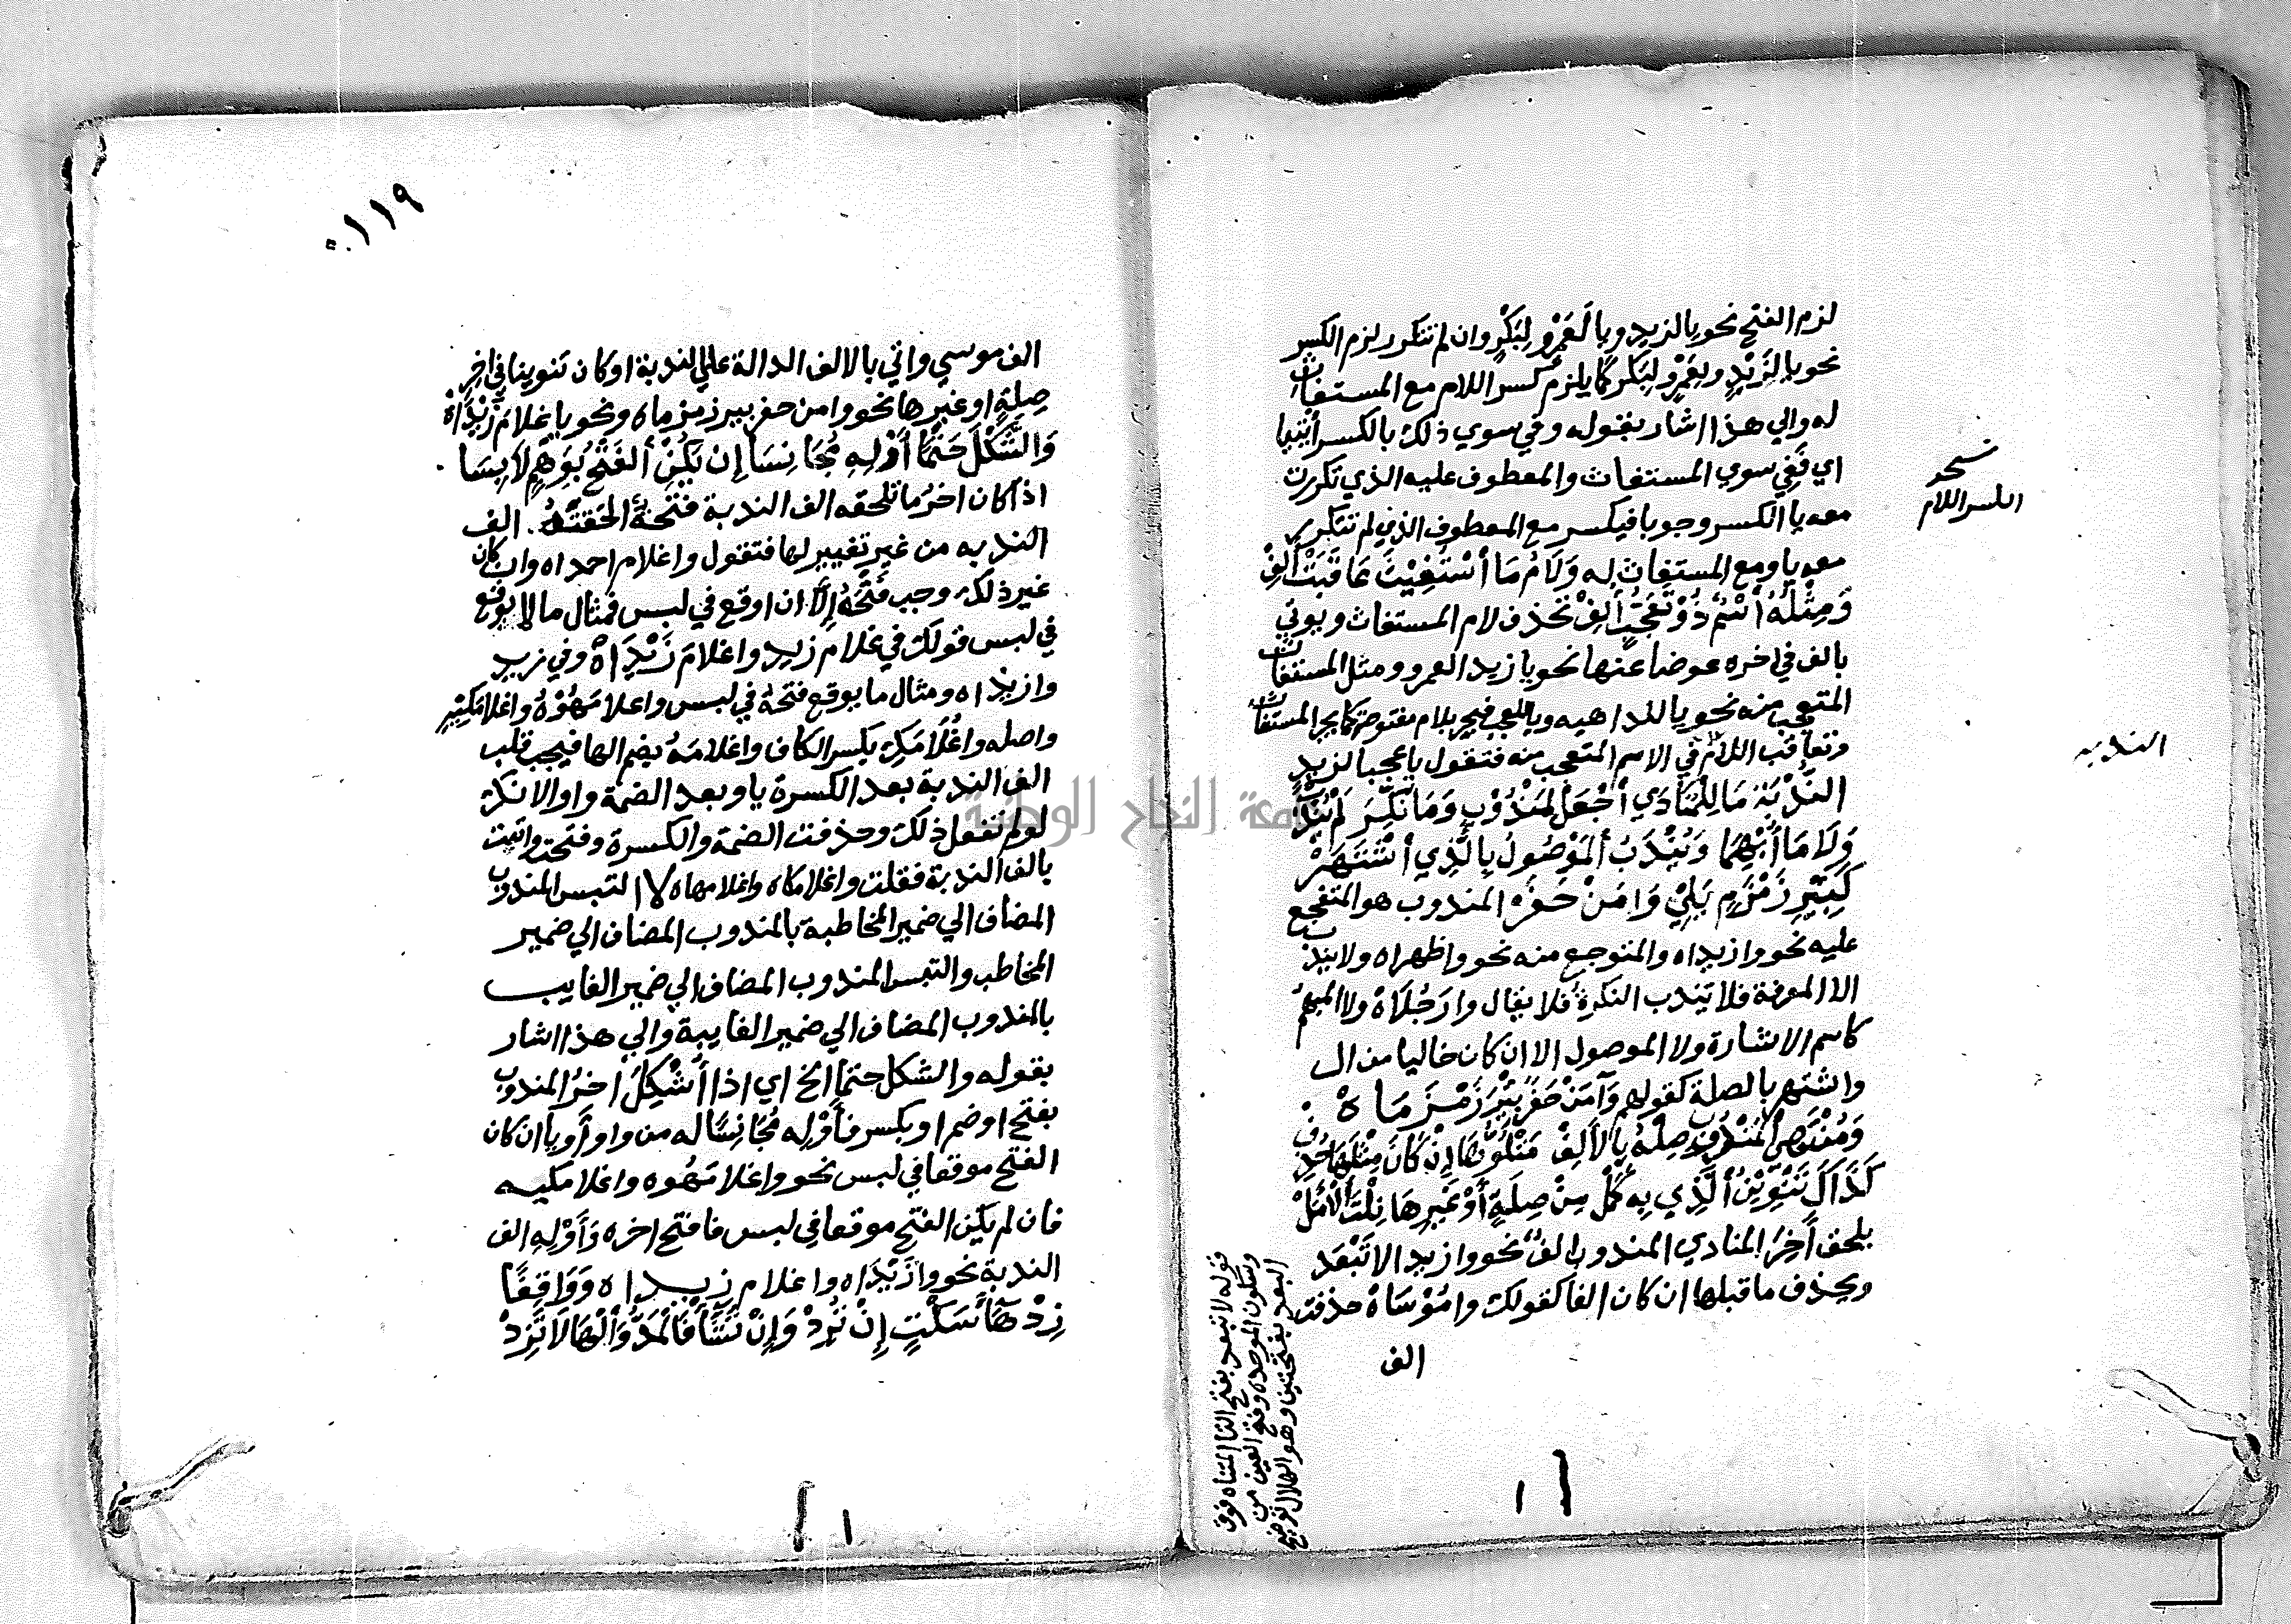 لزم الفتح نحو يا لزيد ويا لَعَمْرٍو لِبَكْرٍ وان لم تتكرر لزم الكسر
نحو يا لَزَيْدٍ وبعَمْرٍو لِبَكر كما يلزم كسر اللام مع المستغاث
له والي هذا اشار بقوله وفي سوي ذلك بالكسر أئتيا
اي فَفِي سوي المستغاث والمعطوف عليه الذي تكررت
معه يا الكسر وجوبا فيكسر مع المعطوف الذي لم تتكرر
معه يا ومع المستغاث له وَلَامُ مَا أسْتُغِيْثَ عَاقَبَتْ ألِفْ
وَمِثْلُهُ أسْمٌ ذُوْ تَعَجُّبٍ أُلِفْ تحذف لام المستغاث ويوتي
بالف في اخره عوضا عنها نحو يا زيد العمرو ومثل المستغاث
المتعجب منه نحو يا للداهيه ويا للعجب فيجر بلام مفتوحة كما يجر المستغاث
وتعاقب اللام في الاسم المتعجب منه فتقول يا عجبا لزيد
النُّدْبَة مَا لِلْمُنَادَي أجْعَلْ لِمَنْدُوْبٍ وَمَا نُكِّرَ لَمْ يُنْدَبْ
وَلَا مَا أُبْهِمَا وَيُنْدَبُ ألمَوْصُولُ بِالَّذِي أشْتَهَرْ
كَبِئْرِ زَمْزَمٍ يَلِيْ وَا مَنْ حَفَرْ المندوب هو المتفجع
عليه نحو وا زيداه والمتوجع منه نحو وا ظهراه ولا يندب
الا المعرفة فلا تندب النكرة فلا يقال وا رَجُلَاهْ ولا المبهم
كاسم الاشارة ولا الموصول الا ان كان خاليا من ال
واشتهر بالصلة كقولهم وَا مَنْ حَفَرَ بِئْرَ زَمْزَمَاهْ
وَمُنْتَهَي ألمَنْدُوْبِ صِلْهُ بِالْأَلِفْ مَتْلُوُّهَا إنْ كَانَ مِثْلَهَا حُذِفْ
كَذَاكَ تَنْوِيْنُ ألَّذِي بِهِ كَمُلْ مِنْ صِلَةٍ أوْ غَيْرِهَا نِلْتَ ألْأمَلْ
يلحق أخِرَ المنادي المندوب الفٌ نحو وا زيدا لا تَبْعَد
ويحذف ما قبلها ان كان الفا كقولك وا مُوْسَاهْ حذفت
الف
نسخه
الكسر اللام
الندبه
قوله لا تبعد بفتح التا المثناه فوق
وسكون الموحده وفتح العين من
البعد بفتحتين وهو الهلاك توضيح
١١٩
الف موسي واتي بالالف الدالة علي الندبة او كان تنوينا في اخر
صِلَةٍ او غيرها نحو وا من حفر بير زمزماه ونحو يا غلامَ زَيْدَاهْ
وَالشَّكْلَ حَتْمًا أَوْلِهِ مُجَانِسَا إن يَكُنِ ألفَتْحُ بِوَهْمٍ لَابِسَا
اذا كان اخرُ ما تلحقه الف الندبة فتحةٌ الحَقَتْهُ الف
الندبه من غير تغيير لها فتقول وا غلام احمداه وان كان
غير ذلك وجب فَتْحُهُ إلَّا ان اوقع في لبس فمثال ما لا يوقع
في لبس قولك في غلام زيد وا غلامَ زَيْدَاهْ وفي زيد
وا زيداه ومثال ما يوقع فتحُهُ في لبس وا غلامَهُوْهُ وا غلامَكِيْهِ
واصله وا غُلَامَكِ بكسر الكاف وا غلامَهُ بضم الها فيجب قلب
الف الندبة بعد الكسرة يا وبعد الضمة واوا لانك
لو لم تفعل ذلك وحذفت الضمة والكسرة وفتحت واتيت
بالف الندبة فقلت وا غلامكاه وا غلامهاه لالتبس المندوب
المضاف الي ضمير المخاطبة بالمندوب المضاف الي ضمير
المخاطب والتبس المندوب المضاف الي ضمير الغايب
بالمندوب المضاف الي ضمير الغايبة والي هذا اشار
بقوله والشكل حتما الخ اي اذا أُشْكِلَ اخرُ المندوب
بفتح او ضم او بكسر فأَوْلِه مُجَانِسًا له من واو أو يا ان كان
الفتح موقعا في لبس نحو وا غلامَهُوه وا غلامكيه
فان لم يكن الفتح موقعا في لبس فافتح اخره وَأَوْلِهِ الف
الندبة نحو وا زَيْدَاه وا غلام زيداه وَوَاقِفًا
زِدْ هَاءَ سَكْتٍ إنْ تُرِدْ وَإنْ تَشَأْ فَالمَدَّ وَألْهَا لَا تَزِدْ
جامعة النجاح الوطنية